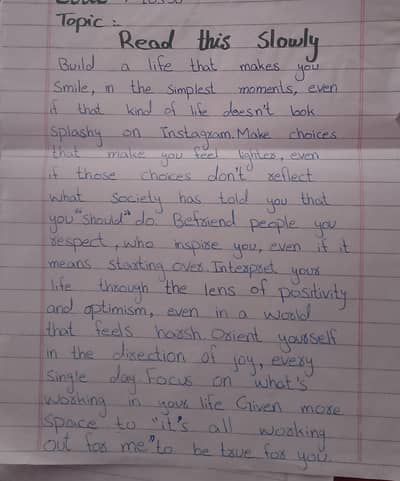 Topic :-
Read this Slowly
Build a life that makes you
Smile, in the simplest moments, even
if that kind of life doesn't look
splashy on Instagram. Make choices
that make you feel lighter, even
if those choices don't reflect
what society has told you that
you "should" do. Befriend people you
respect, who inspire you, even if it
means starting over. Interpret your
life through the lens of positivity
and optimism, even in a world
that feels harsh. Orient yourself
in the direction of joy, every
single day. Focus on what's
working in your life Given more
space to "it's all working
out for me" to be true for you.